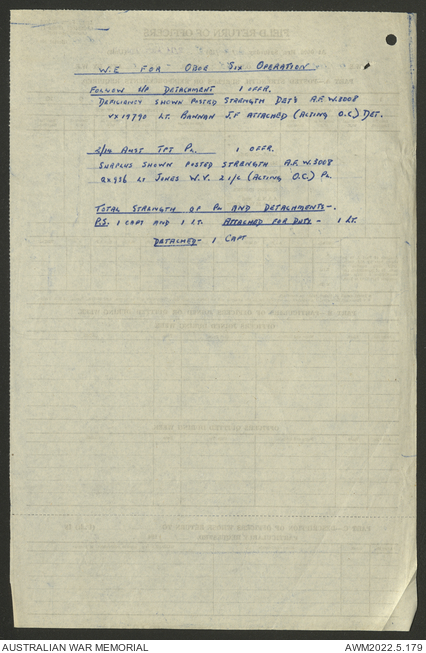 W.E FOR OBOE SIX OPERATION
FOLLOW UP DETACHMENT 1 OFFR.
DEFICIENCY SHOWN POSTED STRENGTH DET'S A.F.W.3008
VX19790 LT. BANNAN J.F ATTACHED (ACTING O.C) DET.
AUST TPT PL. 1 OFFR.
SURPLUS SHOWN POSTED STRENGTH A.F.W.3008
QX936 LT JONES W.V. 2 I/C (ACTING O.C.) PL.
TOTAL STRENGTH OF PL AND DETACHMENTS-.
P.S. 1 CAPT AND 1 LT. ATTACHED FOR DUTY - 1 LT.
DETACHED- 1 CAPT
AUSTRALIAN WAR MEMORIAL
AWM2022.5.179